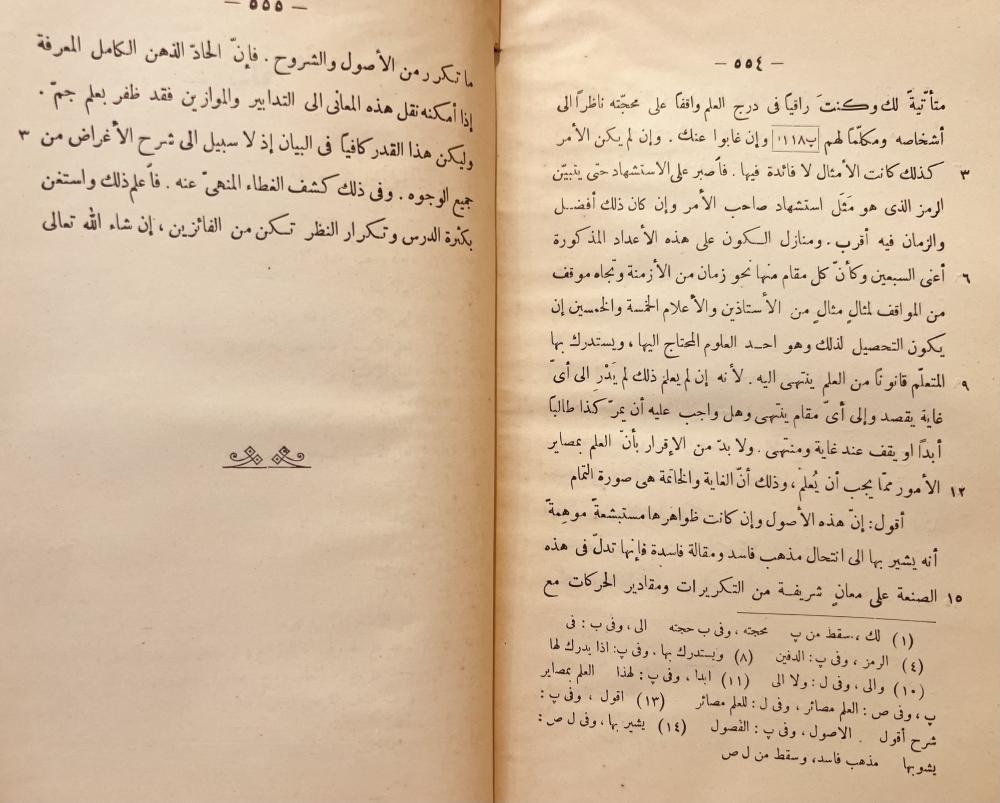 — ٥٥٤ —
متأتّيةً لك وكنتَ راقياً فى درج العلم واقفا على محجّته ناظرًا الى
أشخاصه ومكلّما لهم وإن غابوا عنك . وإن لم يكن الأمر
٣ كذلك كانت الأمثال لا فائدة فيها . فاصبر على الاستشهاد حتى يتبيّن
الرمز الذى هو مَثَل استشهاد صاحب الأمر وإن كان ذلك أفضـل
والزمان فيه أقرب . ومنازل الـكون على هذه الأعداد المذكورة
٦ أعنى السبعين وكأنّ كل مقام منها نحو زمان من الأزمنة وتجاه موقف
من المواقف لمثالٍ مثالٍ من الأستاذين والأعلام الخمسة والخمسين إن
يكون التحصيل لذلك وهو احـد العلوم المحتاج اليها ، ويستدرك بها
٩ المتعلّم قانونًا من العلم ينتهى اليه . لأنه إن لم يعلم ذلك لم يَدْرِ الى أىّ
غاية يقصد وإلى أىّ مقام ينتهى وهل واجب عليه أن يمرّ كذا طالبًا
أبدًا او يقف عند غاية ومنتهى . ولا بدّ من الإقرار بأنّ العلم بمصاير
١٢ الأمور ممّا يجب أن يُعلم ، وذلك أنّ الغاية والخاتمة هى صورة التمام
أقول : إنّ هذه الأصول وإن كانت ظواهرها مستبشعةً موهِمةً
أنه يشير بها الى انتحال مذهب فاسد ومقالة فاسدة فإنها تدلّ فى هذه
١٥ الصنعة على معانٍ شريفـة من التـكريرات ومقادير الحركات مع
(١) لك ، سقط من پ محجته ، وفى ب حجته الى ، وفى ب : فى
(٤) الرمز ، وفى پ : الدفين (٨) ويستدرك بها ، وفى پ : اذا يدرك لها
(١٠) والى ، وفى ل : ولا الى (١١) ابدا ، وفى پ : لهذا العلم بمصاير
پ ، وفى ص : العلم مصائر ، وفى ل : للعلم مصائر (١٣) اقول ، وفى پ :
شرح أقول الاصول ، وفى پ : الفصول (١٤) يشير بها ، وفى ل ص :
يشوبها مذهب فاسد ، وسقط من ل ص
— ٥٥٥ —
ما تـكرر من الأصول والشروح . فإنّ الحادّ الذهن الـكامل المعرفة
إذا أمكنه نقل هذه المعانى الى التدابير والموازين فقد ظفر بعلم جمّ .
٣ وليكن هذا القدر كافياً فى البيان إذ لا سبيل الى شرح الأغراض من
جميع الوجوه . وفى ذلك كشف الغطاء المنهىّ عنه . فاعلم ذلك واستغن
بكثرة الدرس وتـكرار النظر تـكن من الفائزين ، إن شاء الله تعالى